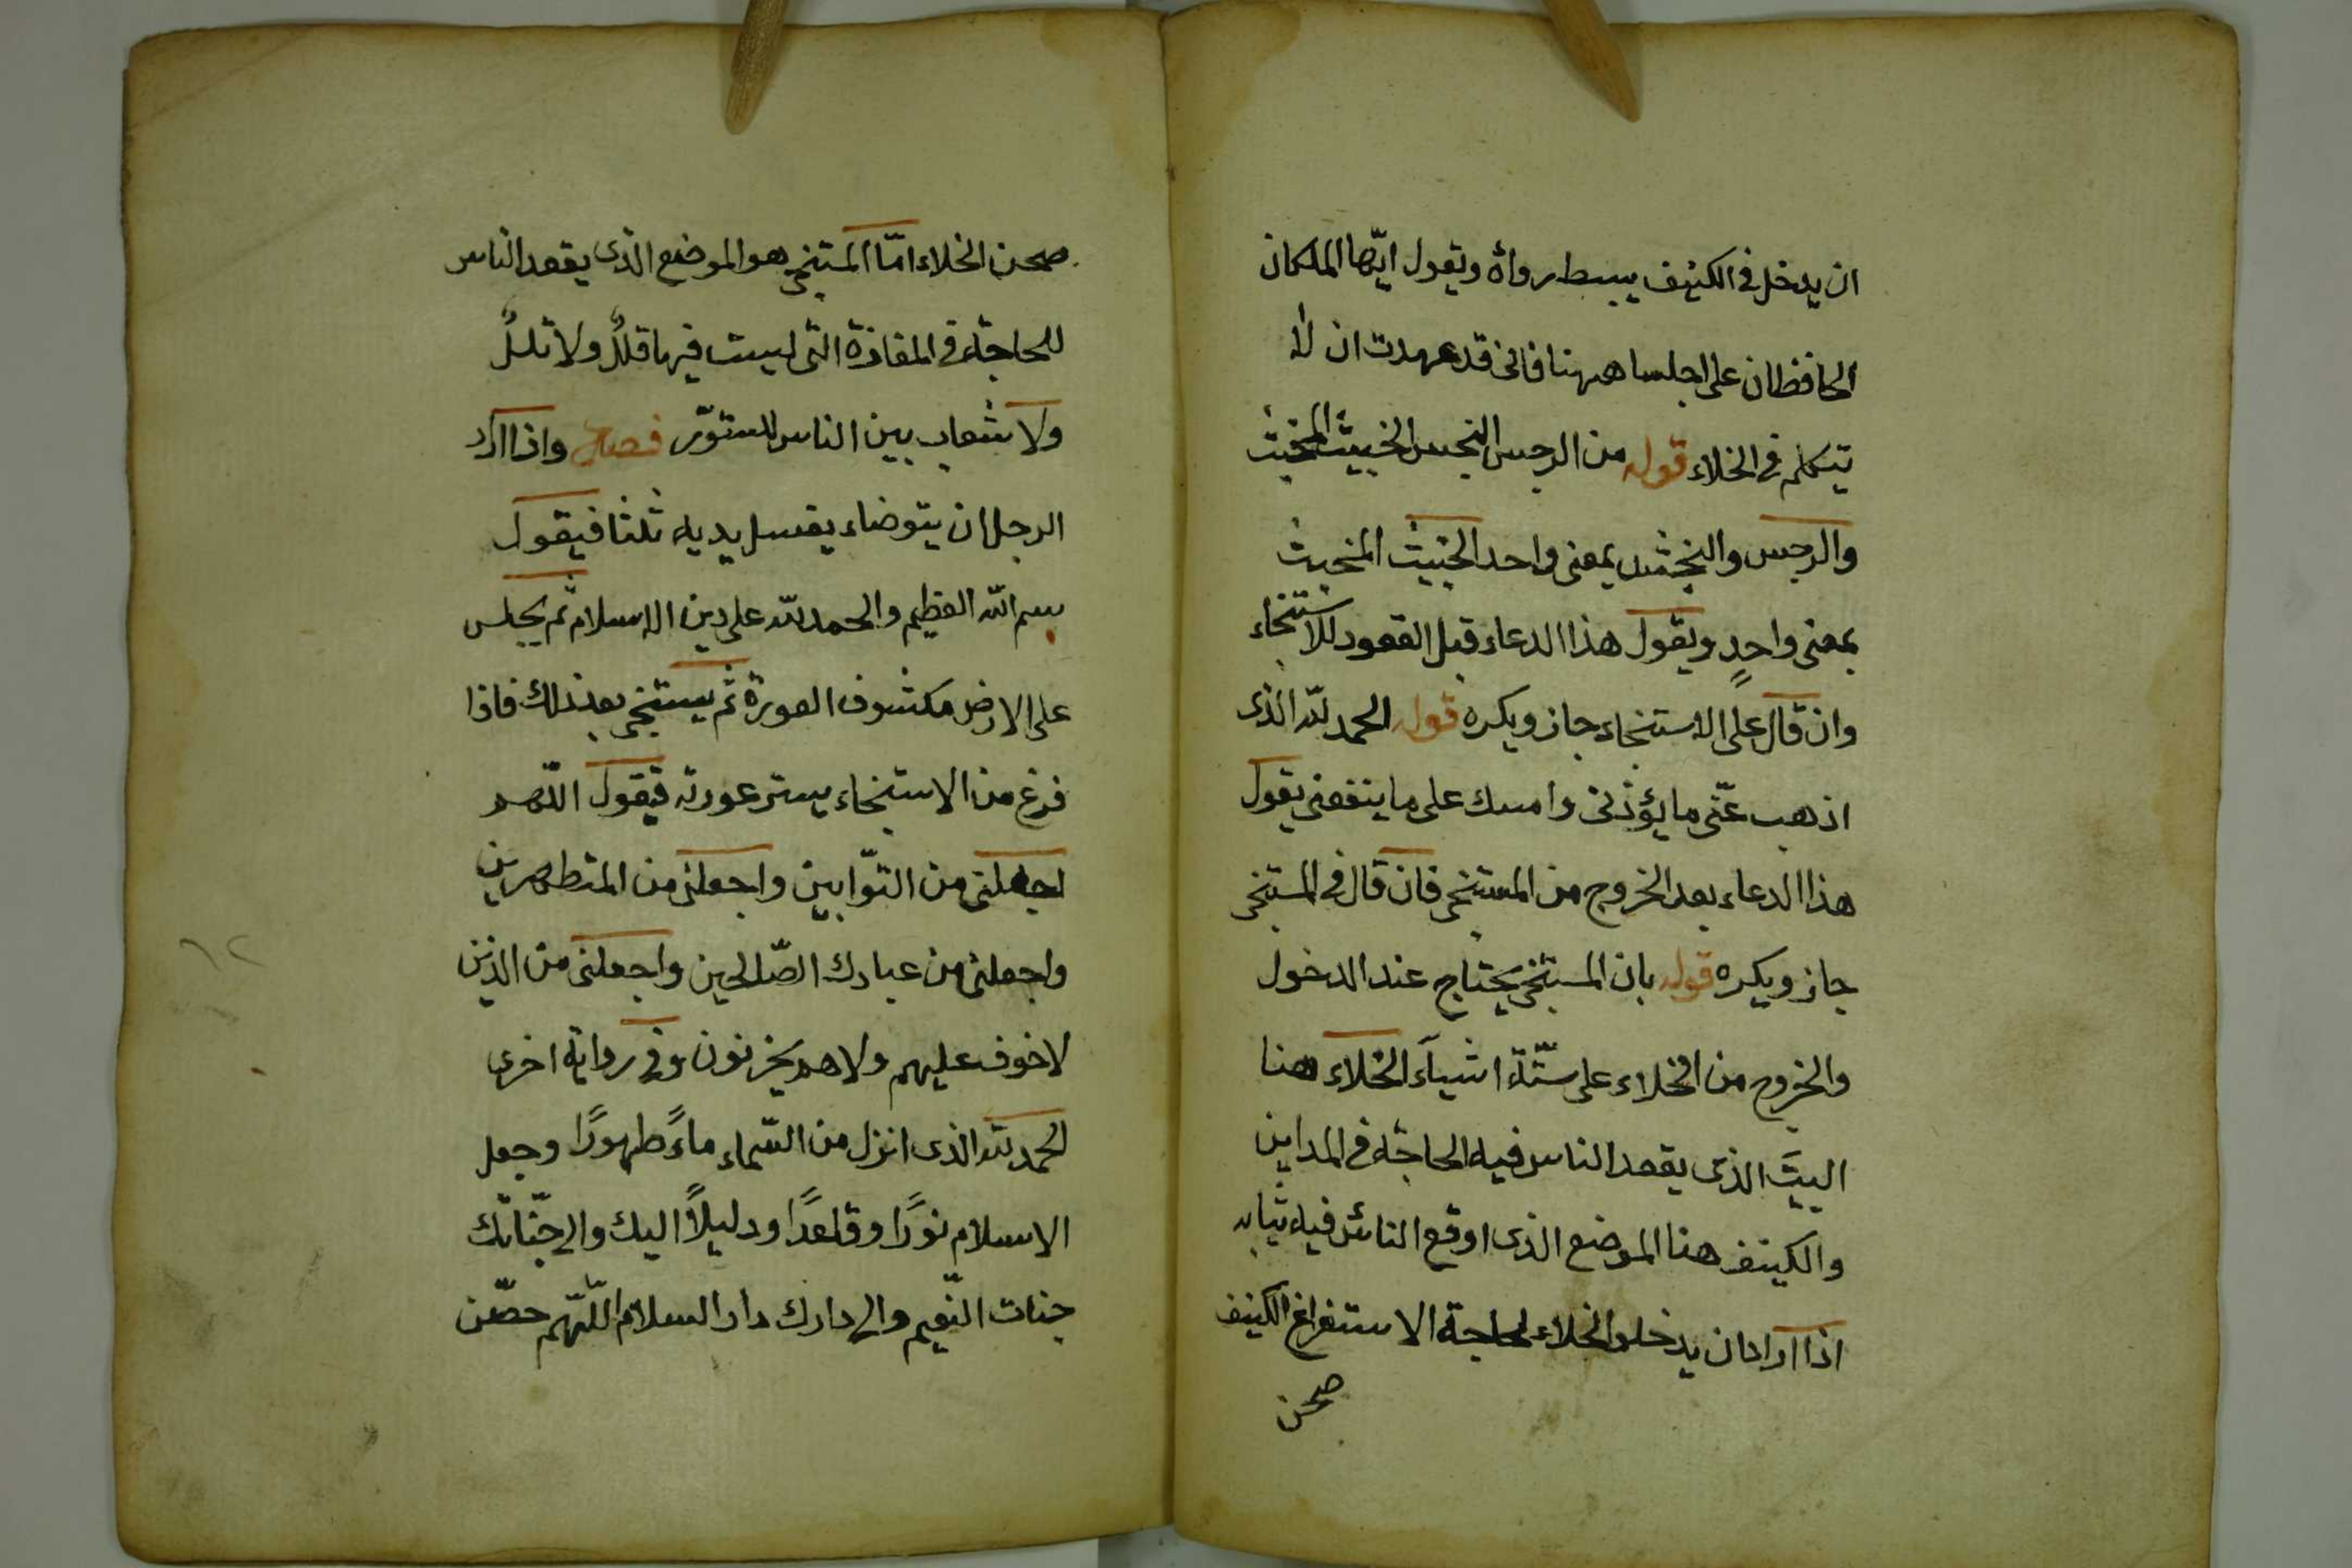 ان يدخل فى الكنيف يبسط رداه ويقول ايّها الملكان
الحافظان على اجلسا ههنا فانى قد عهدت ان لا
يتكلم فى الخلاء قوله من الرجس النجس الخبيث المخبث
والرجس والنجس بمعنى واحد الخبيث المخبث
بمعنى واحدٍ ويقول هذا الدعاء قبل القعود للاستنجاء
وان قال على الاستنجاء جاز ويكره قوله الحمد لله الذى
اذهب عنّى ما يؤذنى وامسك على ما ينفعنى يقول
هذا الدعاء بعد الخروج من المستنجى فان قال فى المستنجى
جاز ويكره قوله بان المستنجى يحتاج عند الدخول
والخروج من الخلاء على ستّة اشيآء الخلاء هنا
البيت الذى يقعد الناس فيه الحاجة فى المداين
والكنيف هنا الموضع الذى اوقع الناس فيه ثيابه
اذا اراد ان يدخلوا الخلاء لحاجة الاستفراغ الكنيف
صحن
صحن الخلاء امّا المستنجى هو الموضع الذى يقعد الناس
للحاجة فى المفازة التى ليست فيها قللٌ ولا تللٌ
ولا شعاب بين الناس للستوّر فصل واذا اراد
الرجل ان يتوضاء يغسل يديه ثلثا فيقول
بسم الله العظيم والحمد لله على دين الاسلام ثم يجلس
على الارض مكشوف العورة ثم يستنجى بعد ذلك فاذا
فرغ من الاستنجاء يستر عورته فيقول اللهم
اجعلنى من التوّابين واجعلنى من المتطهرين
واجعلنى من عبادك الصّالحين واجعلنى من الذين
لا خوف عليهم ولا هم يحزنون وفى رواية اخرى
الحمد لله الذى انزل من السّماء ماءً طهورًا وجعل
الاسلام نورًا وقاعدًا ودليلاً اليك والى جنّاتك
جنات النّعيم والى دارك دار السلام اللّهم حصّن